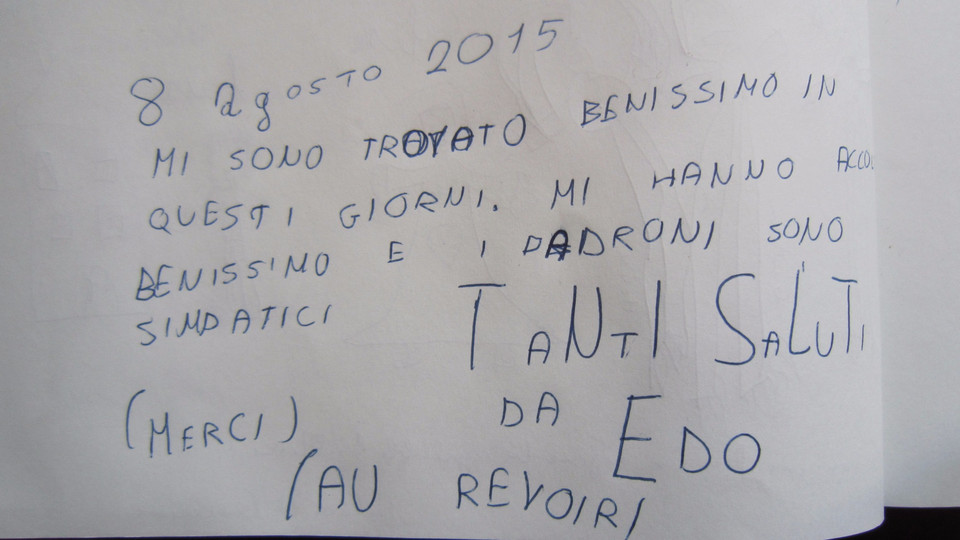 8 agosto 2015
MI SONO TROVATO BENISSIMO IN
QUESTI GIORNI. MI HANNO ACCO
BENISSIMO E I PADRONI SONO
SIMPATICI
TANTI SALUTI
(MERCI) DA EDO
(AU REVOIR)